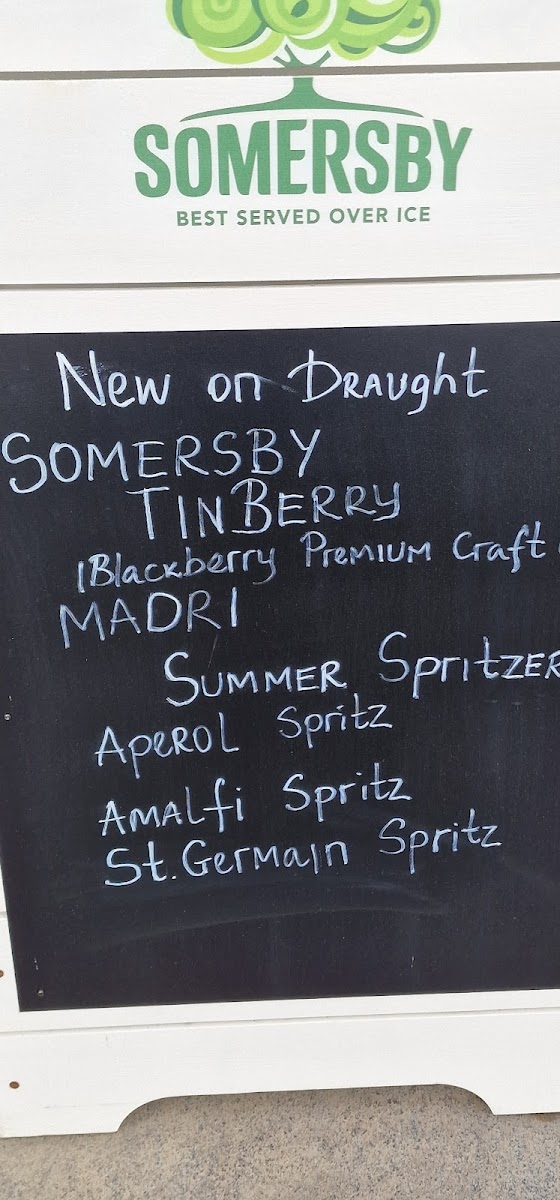 SOMERSBY
BEST SERVED OVER ICE
New on Draught
SOMERSBY
TINBERRY
(Blackberry Premium Craft
MADRI
SUMMER SPRITZER
Aperol Spritz
AMALfi Spritz
St. Germain Spritz